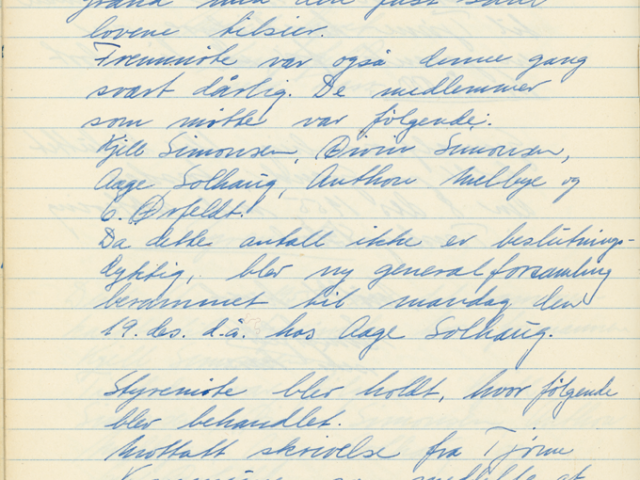 lovene tilsier.
Fremmøte var også denne gang
svært dårlig. De medlemmer
som møtte var følgende:
Kjell Simonsen, Øivin Simonsen,
Aage Solhaug, Anthon Melbye og
C. Ørfeldt.
Da dette antall ikke er beslutnings-
dyktig, blev ny generalforsamling
berammet til mandag den
19. des. d.å. hos Aage Solhaug.
Styremøte blev holdt, hvor følgende
blev behandlet.
Mottatt skrivelse fra Tjøme